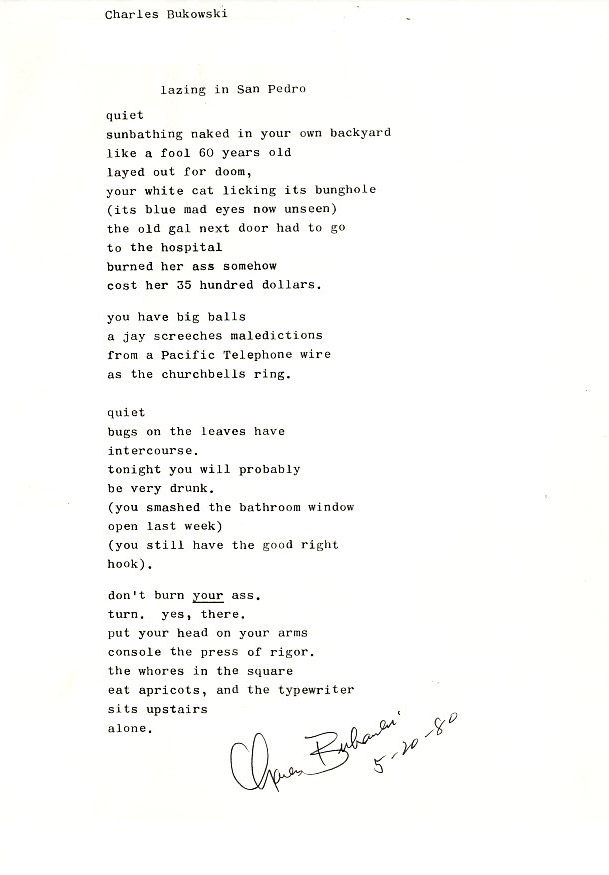 Charles Bukowski
lazing in San Pedro
quiet
sunbathing naked in your own backyard
like a fool 60 years old
layed out for doom,
your white cat licking its bunghole
(its blue mad eyes now unseen)
the old gal next door had to go
to the hospital
burned her ass somehow
cost her 35 hundred dollars.
you have big balls
a jay screeches maledictions
from a Pacific Telephone wire
as the churchbells ring.
quiet
bugs on the leaves have
intercourse.
tonight you will probably
be very drunk.
(you smashed the bathroom window
open last week)
(you still have the good right
hook).
don't burn your ass.
turn.  yes, there.
put your head on your arms
console the press of rigor.
the whores in the square
eat apricots, and the typewriter
sits upstairs
alone.
Charles Bukowski
5-20-80